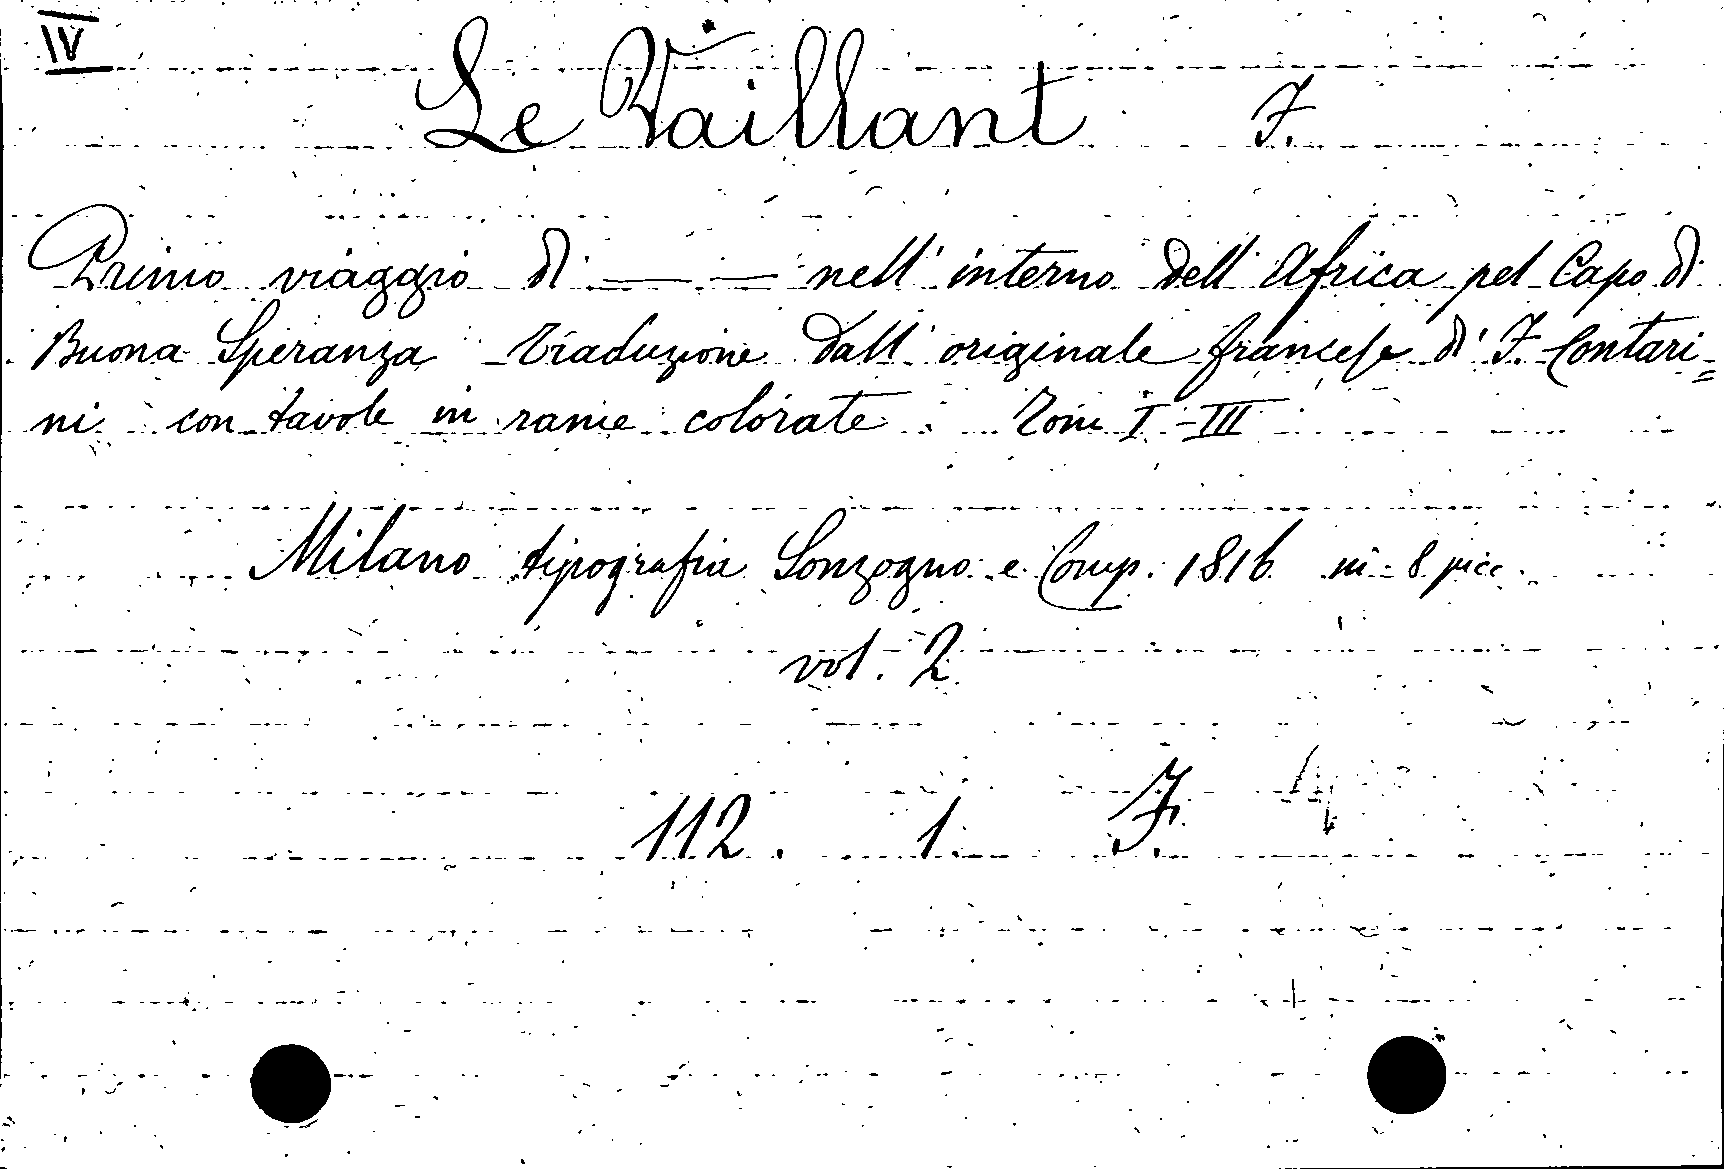 IV
Le Vaillant F.
Primo viaggio di — — nell' interno dell' Africa pel Capo di
Buona Speranza Traduzione dall' originale francese di F. Contari=
ni con tavole in rame colorate. Tomi I-III
Milano tipografia Sonzogno e Comp. 1816 in-8 picc.
vol. 2
112. 1. F. 4